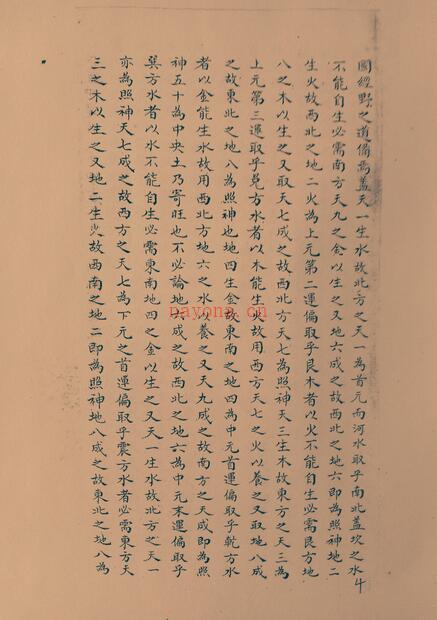 國經野之道備焉蓋天一生水故北方之天一為首元而河水取乎南北蓋坎之水
不能自生必需南方天九之金以生之又地六成之故西北之地六即為照神地二
生火故西北之地二火為上元第二運偏取乎艮木者以火不能自生必需艮方地
八之木以生之又取天七成之故西北方天七為照神天三生木故東方之天三為
上元第三運取乎兌方水者以木能生火故用西方天七之火以養之又取地八成
之故東北之地八為照神也地四生金故東南之地四為中元首運偏取乎乾方水
者以金能生水故用西北方地六之水以養之又天九成之故南方之天成即為照
神五十為中央土乃寄旺也不必論地六成之故西北之地六為中元末運偏取乎
巽方水者以水不能自生必需東南地四之金以生之又天一生水故北方之天一
亦為照神天七成之故西方之天七為下元之首運偏取乎震方水者必需東方天
三之木以生之又地二生火故西南之地二即為照神地八成之故東北之地八為
nayona.cn